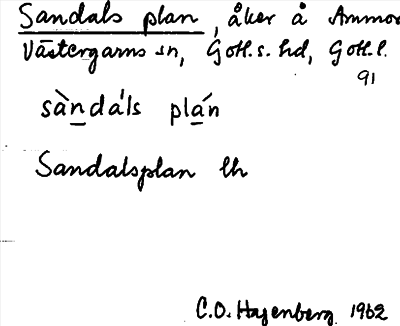 Sandals plan, åker å Ammor
Västergarns sn, Gotl. s. hd, Gotl. l.
91
sàndáls plán
Sandalsplan lh
C.O. Hagenberg 1962